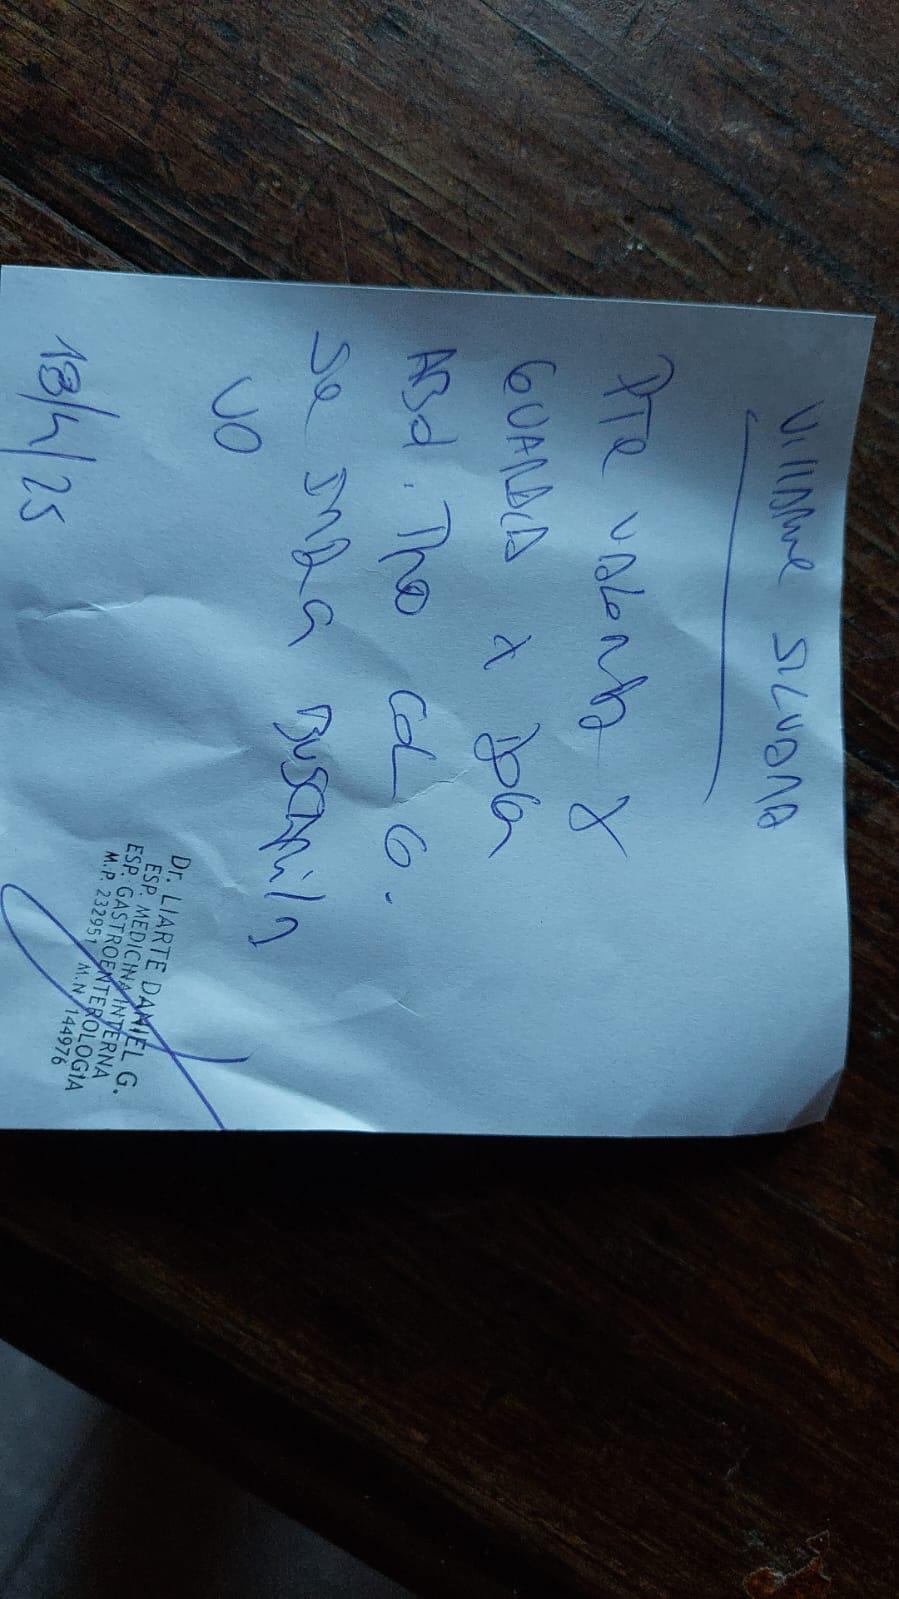 Villarme SILVANA
PTE VALORADA X
GUARDIA X DOLOR
ABd. TIPO COLICO.
Se INDICA BUSCAPINA
VO
18/4/25
Dr. LIARTE DANIEL G.
ESP. MEDICINA INTERNA
ESP. GASTROENTEROLOGIA
M.P. 232951 M.N. 144976